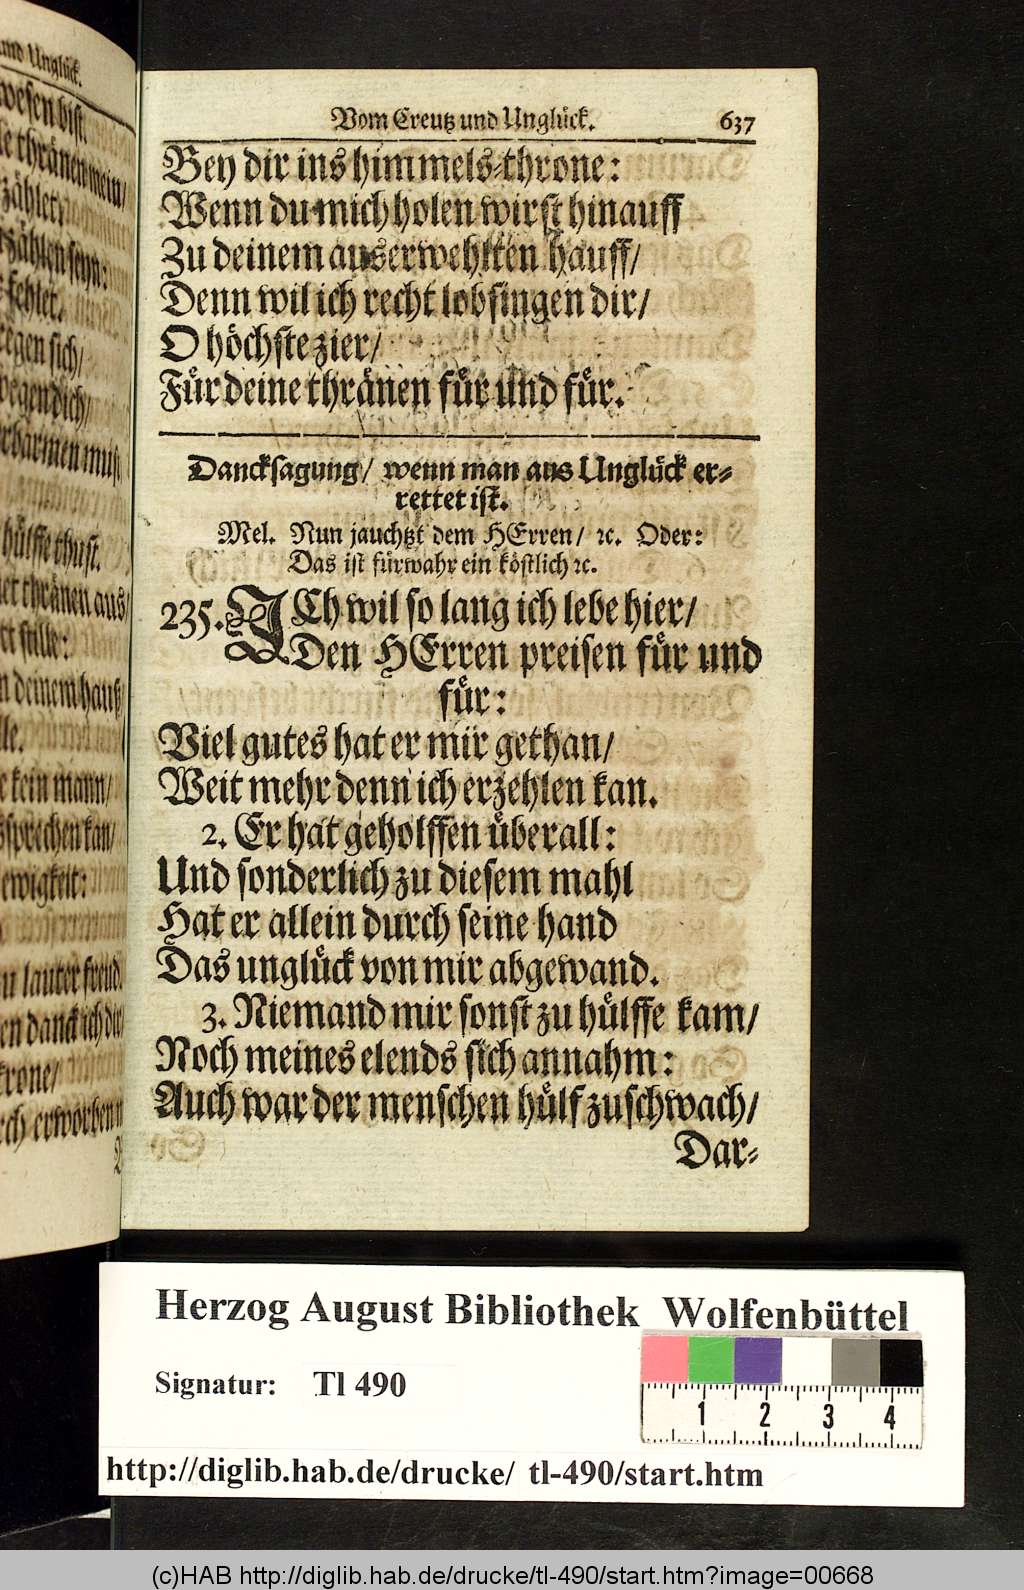 und Unglück.
wesen bist.
thränen mein/
zählet,
zählen seyn:
fehlet.
gegen sich/
gegen dich/
erbarmen muß
hülffe thust.
thränen aus/
stille:
deinem hauß
kein mann/
sprechen kan/
ewigkeit:
lauter freud
danck ich dir
krone/
erworben
Vom Creutz und Unglück. 637
Bey dir ins himmels-throne:
Wenn du mich holen wirst hinauff
Zu deinem auserwehlten hauff/
Denn wil ich recht lobsingen dir/
O höchste zier/
Für deine thränen für und für.
Dancksagung/ wenn man aus Unglück er-
rettet ist.
Mel. Nun jauchtzt dem HErren/ ꝛc. Oder:
Das ist fürwahr ein köstlich ꝛc.
235. ICh wil so lang ich lebe hier/
Den HErren preisen für und
für:
Viel gutes hat er mir gethan/
Weit mehr denn ich erzehlen kan.
2. Er hat geholffen überall:
Und sonderlich zu diesem mahl
Hat er allein durch seine hand
Das unglück von mir abgewand.
3. Niemand mir sonst zu hülffe kam/
Noch meines elends sich annahm:
Auch war der menschen hülf zu schwach/
Dar-
Herzog August Bibliothek Wolfenbüttel
Signatur: Tl 490
1 2 3 4
http://diglib.hab.de/drucke/ tl-490/start.htm
(c)HAB http://diglib.hab.de/drucke/tl-490/start.htm?image=00668